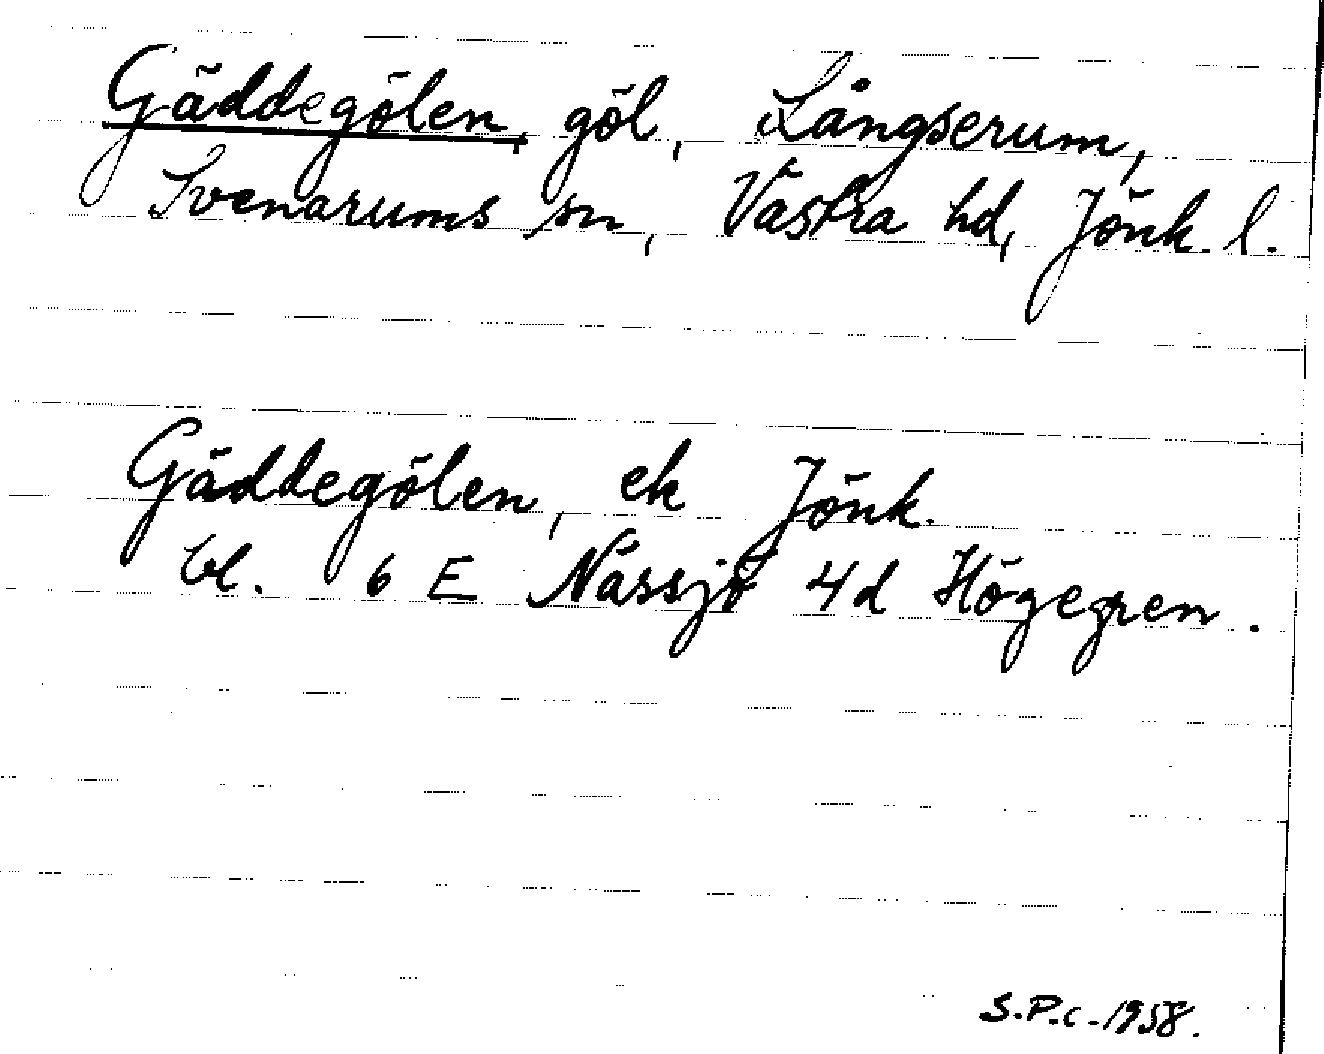 Gäddegölen, göl, Långserum,
Svenarums sn, Västra hd, Jönk. l.
Gäddegölen, ek Jönk.
bl. 6 E Nässjö 4d Högegren.
S.P.c.-1958.